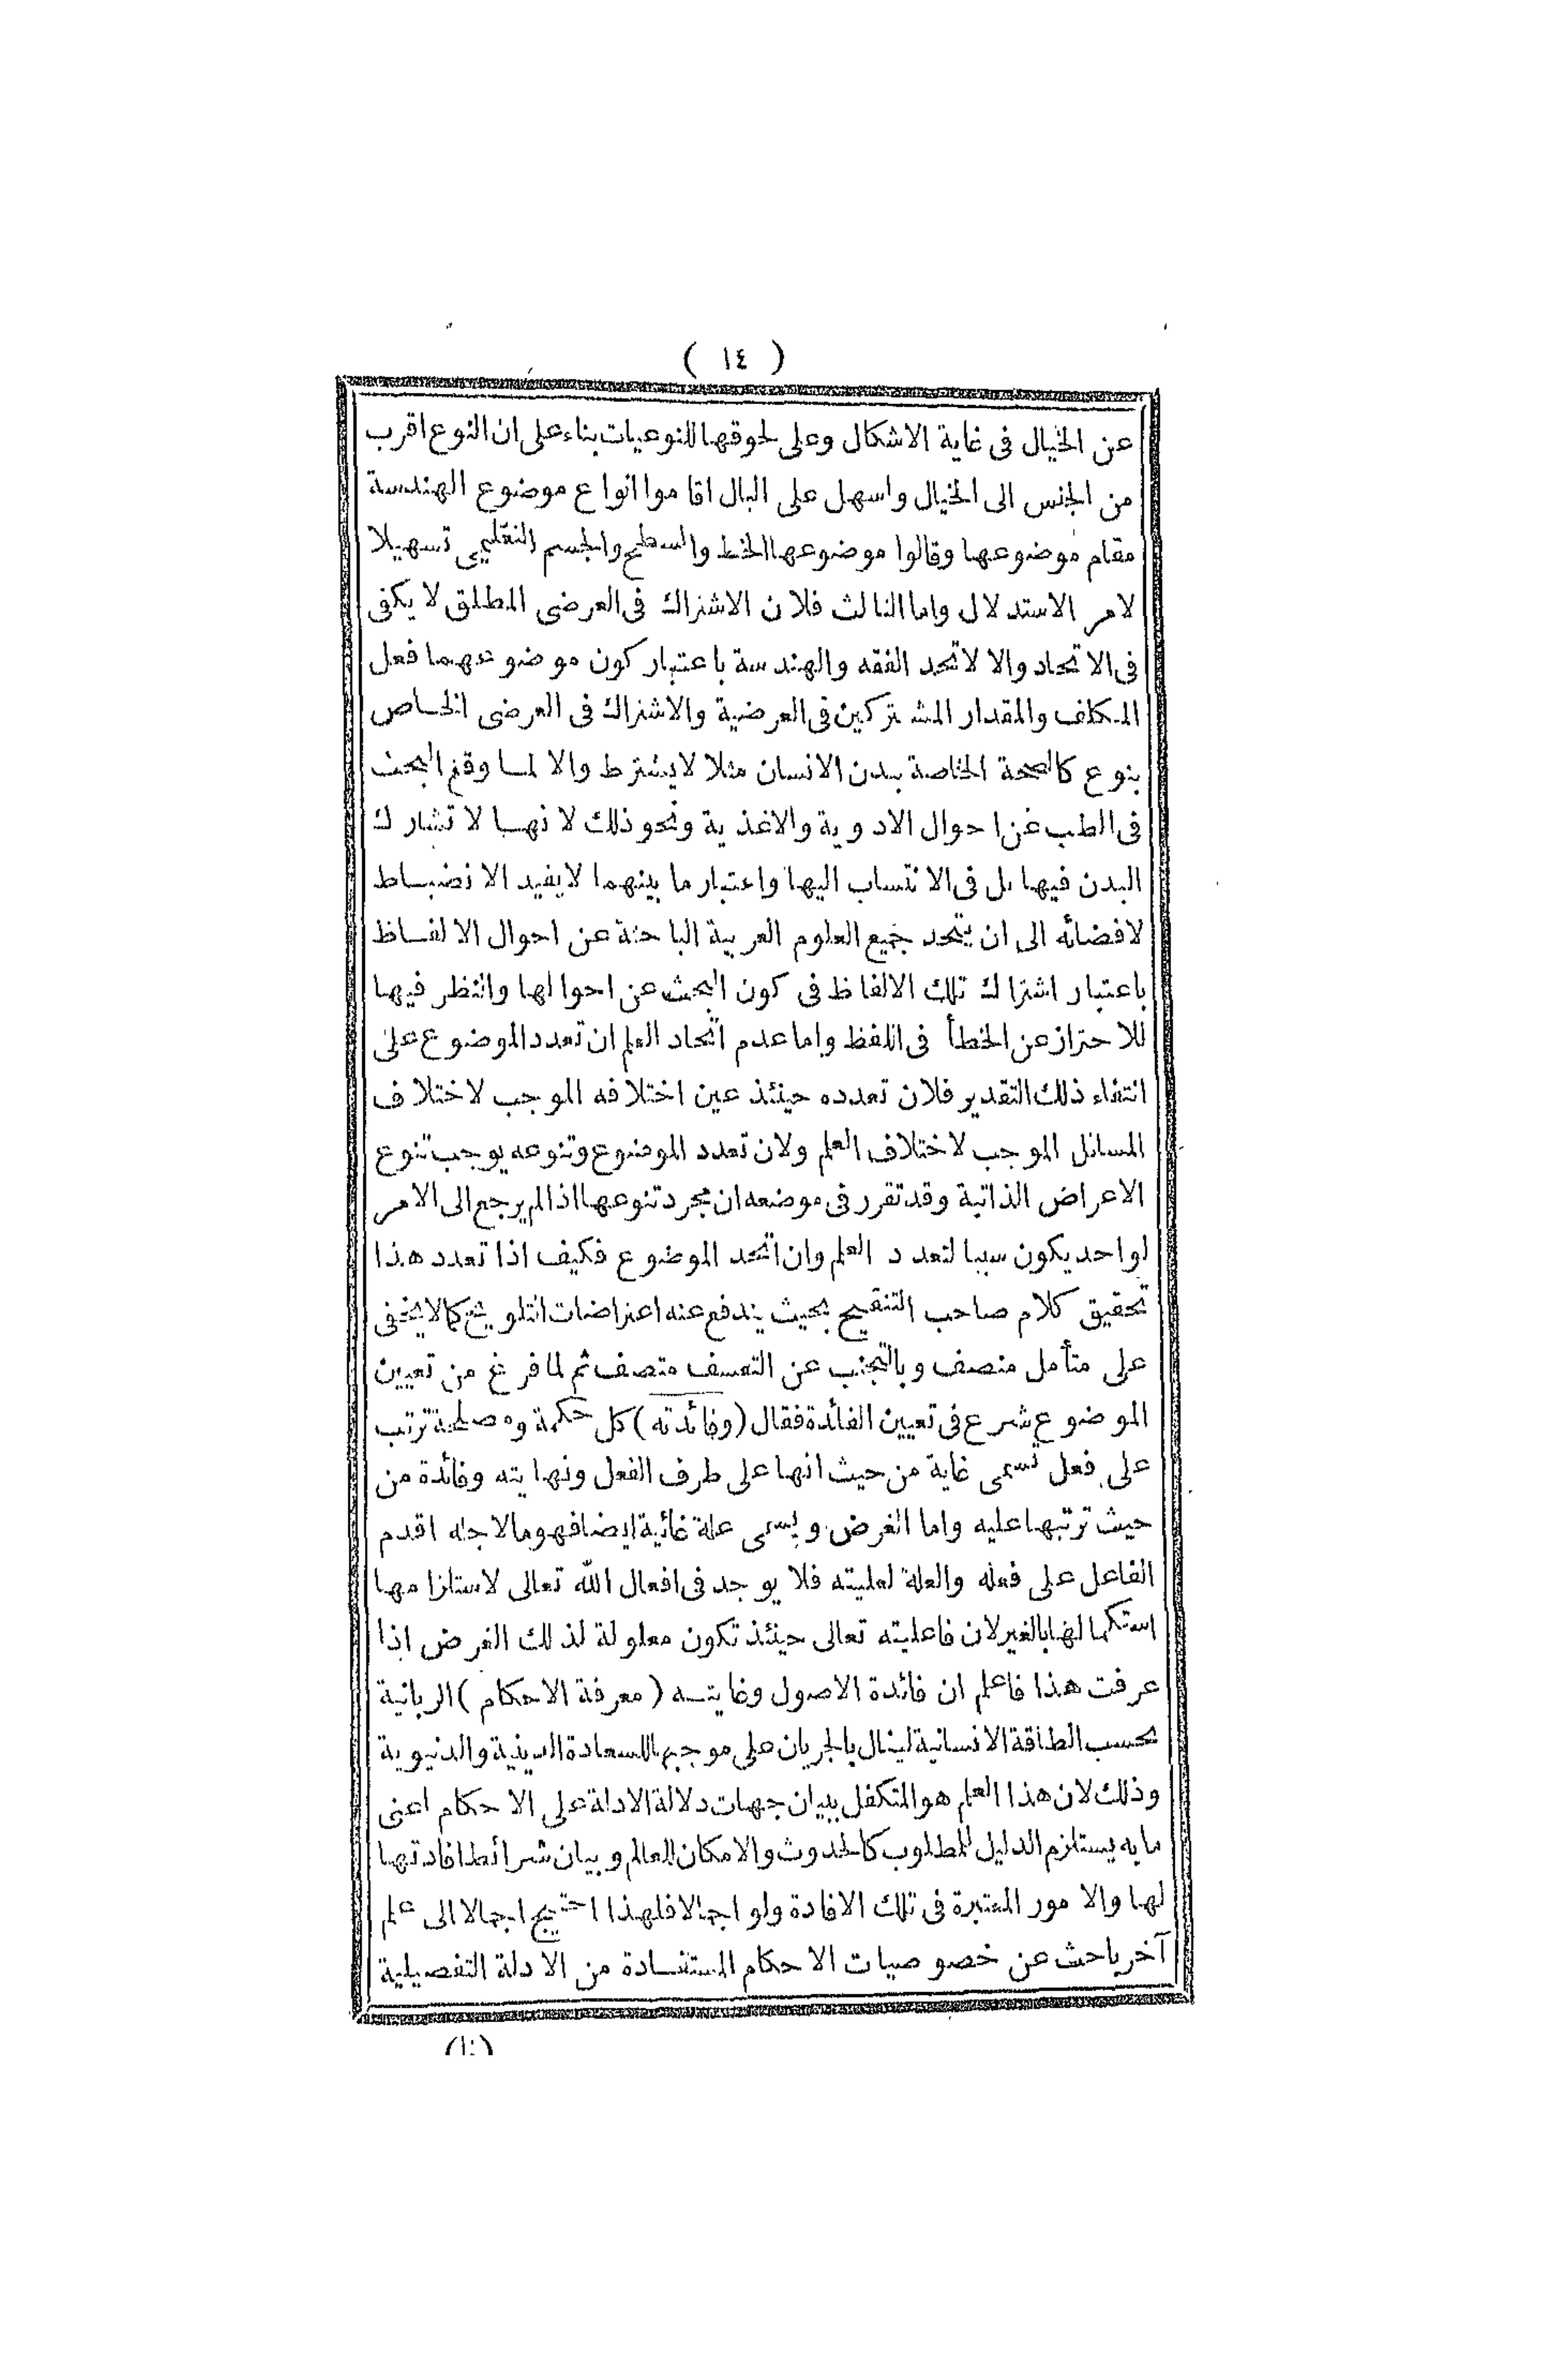 ( ١٤ )
عن الخيال فى غاية الاشكال وعلى لحوقها للنوعيات بناء على ان النوع اقرب
من الجنس الى الخيال واسهل على البال اقاموا انواع موضوع الهندسة
مقام موضوعها وقالوا موضوعها الخط والسطح والجسم التعليمى تسهيلا
لامر الاستدلال واما الثالث فلان الاشتراك فى العرضى المطلق لا يكفى
فى الاتحاد والا لاتحد الفقه والهندسة باعتبار كون موضوعهما فعل
المكلف والمقدار المشتركين فى العرضية والاشتراك فى العرضى الخاص
بنوع كالصحة الخاصة ببدن الانسان مثلا لايشترط والا لما وقع البحث
فى الطب عن احوال الادوية والاغذية ونحو ذلك لانها لا تشارك
البدن فيها بل فى الانتساب اليها واعتبار ما بينهما لايفيد الانضباط
لافضائه الى ان يتحد جميع العلوم العربية الباحثة عن احوال الالفاظ
باعتبار اشتراك تلك الالفاظ فى كون البحث عن احوالها والنظر فيها
للاحتراز عن الخطأ فى اللفظ واما عدم اتحاد العلم ان تعدد الموضوع على
انتفاء ذلك التقدير فلان تعدده حينئذ عين اختلافه الموجب لاختلاف
المسائل الموجب لاختلاف العلم ولان تعدد الموضوع وتنوعه يوجب تنوع
الاعراض الذاتية وقد تقرر فى موضعه ان مجرد تنوعها اذا لم يرجع الى الامر
لواحد يكون سببا لتعدد العلم وان اتحد الموضوع فكيف اذا تعدد هذا
تحقيق كلام صاحب التنقيح بحيث يندفع عنه اعتراضات التلويح كما لا يخفى
على متأمل منصف وبالتجنب عن التعسف متصف ثم لما فرغ من تعيين
الموضوع شرع فى تعيين الفائدة فقال (وفائدته) كل حكمة ومصلحة ترتب
على فعل تسمى غاية من حيث انها على طرف الفعل ونهايته وفائدة من
حيث ترتبها عليه واما الغرض ويسمى علة غائية ايضا فهو ما لاجله اقدم
الفاعل على فعله والعلة لعليته فلا يوجد فى افعال الله تعالى لاستلزامها
استكمالها بالغير لان فاعليته تعالى حينئذ تكون معلولة لذلك الغرض اذا
عرفت هذا فاعلم ان فائدة الاصول وغايته ( معرفة الاحكام ) الربانية
بحسب الطاقة الانسانية لينال بالجريان على موجبها السعادة الدينية والدنيوية
وذلك لان هذا العلم هو المتكفل ببيان جهات دلالة الادلة على الاحكام اعنى
ما به يستلزم الدليل المطلوب كالحدوث والامكان للعالم وبيان شرائط افادتها
لها والامور المعتبرة فى تلك الافادة ولو اجمالا فلهذا احتيج اجمالا الى علم
آخر باحث عن خصوصيات الاحكام المستفادة من الادلة التفصيلية